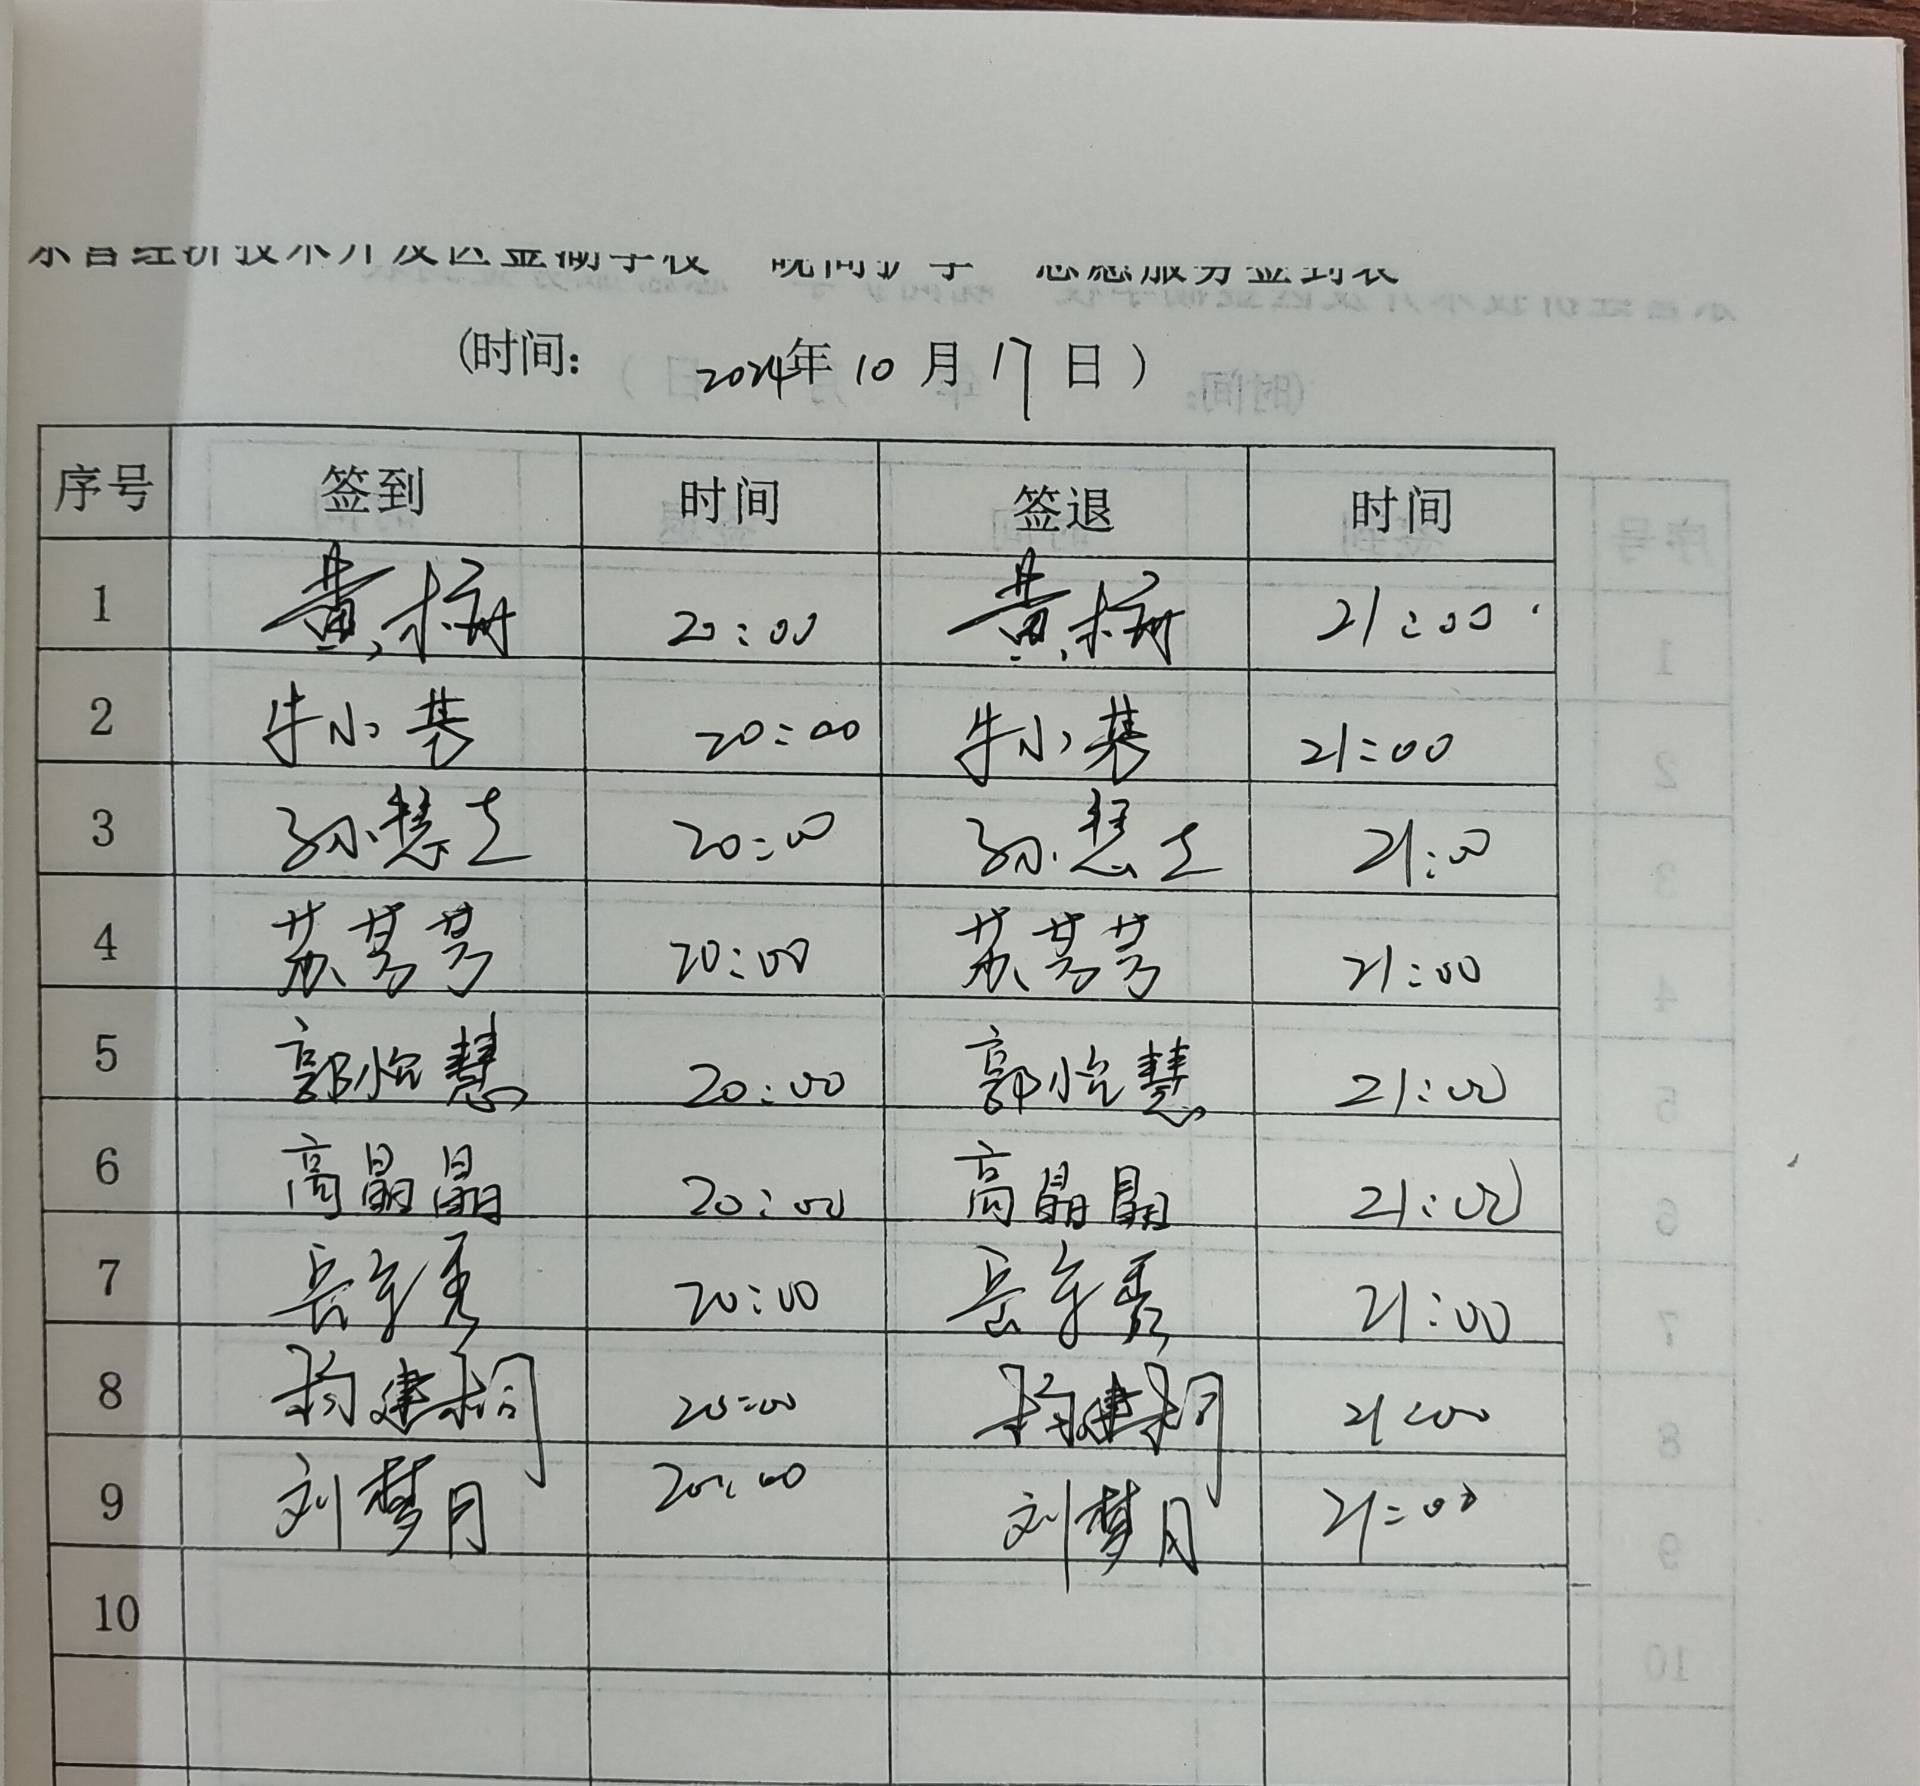 经济技术开发区金湖学校 晚间护学 志愿服务签到表
(时间： 2024年 10 月 17 日 )
序号 签到 时间 签退 时间
1 黄 20:00 黄 21:00
2 牛小 20:00 牛小 21:00
3 孙慧 20:00 孙慧 21:00
4 苏芳芳 20:00 苏芳芳 21:00
5 郭怡慧 20:00 郭怡慧 21:00
6 高晶晶 20:00 高晶晶 21:00
7 岳 秀 20:00 岳 秀 21:00
8 杨建桐 20:00 杨建桐 21:00
9 刘梦月 20:00 刘梦月 21:00
10